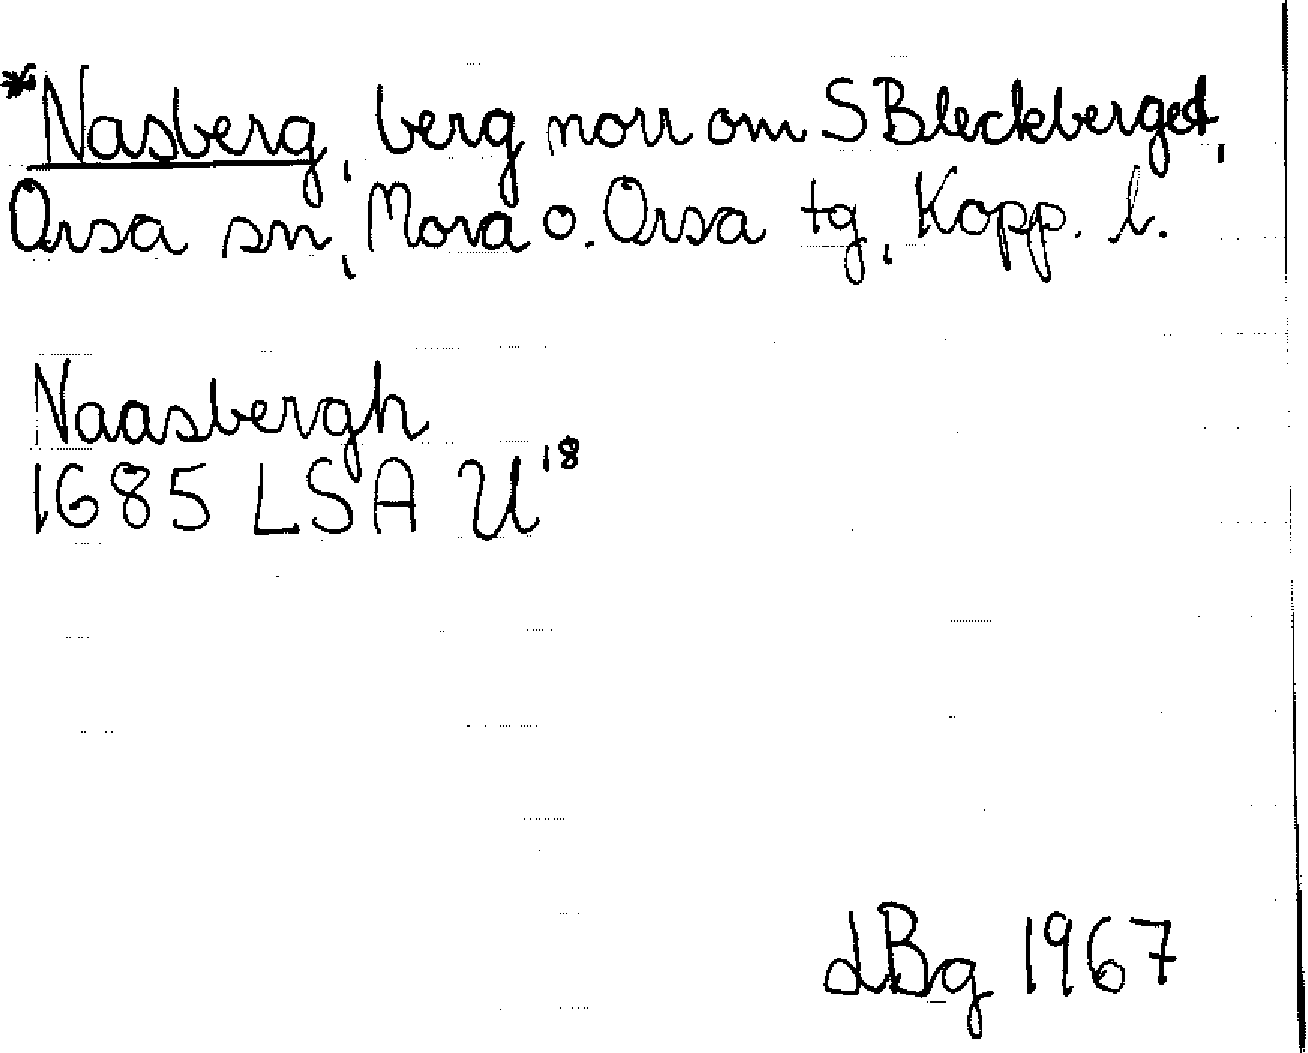 *Nasberg, berg norr om S Bleckberget,
Orsa sn, Mora o. Orsa tg, Kopp. l.
Naasbergh
1685 LSA U18
LBg 1967